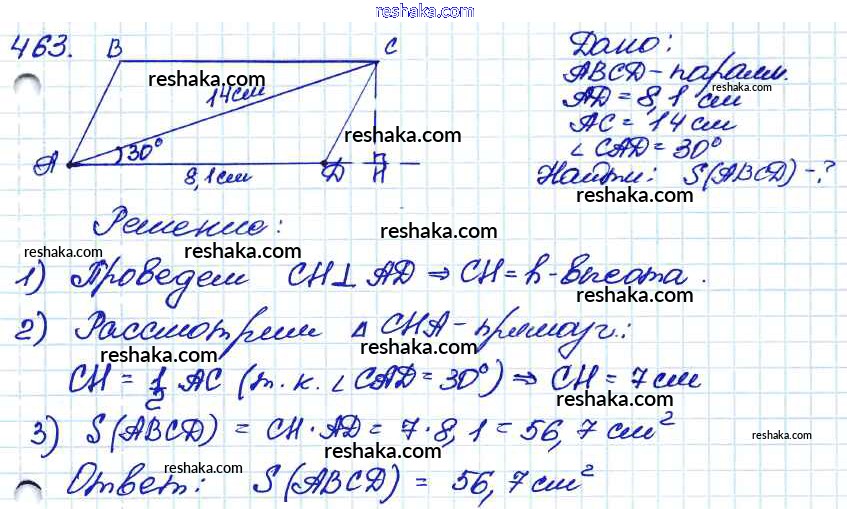 reshaka.com
463. B C
reshaka.com
14см
A 30° D H
8,1см
reshaka.com
Дано:
ABCD - паралл.
reshaka.com
AD = 8,1 см
AC = 14 см
∠ CAD = 30°
reshaka.com
Найти: S(ABCD) - ?
reshaka.com
Решение:
reshaka.com
reshaka.com
1) Проведем CH ⊥ AD ⇒ CH = h - высота.
reshaka.com
2) Рассмотрим △ CHA - прямоуг.:
reshaka.com
reshaka.com
CH = 1/2 AC (т.к. ∠ CAD = 30°) ⇒ CH = 7 см
reshaka.com
3) S(ABCD) = CH · AD = 7 · 8,1 = 56,7 см²
reshaka.com
reshaka.com
reshaka.com
Ответ: S(ABCD) = 56,7 см²
reshaka.com